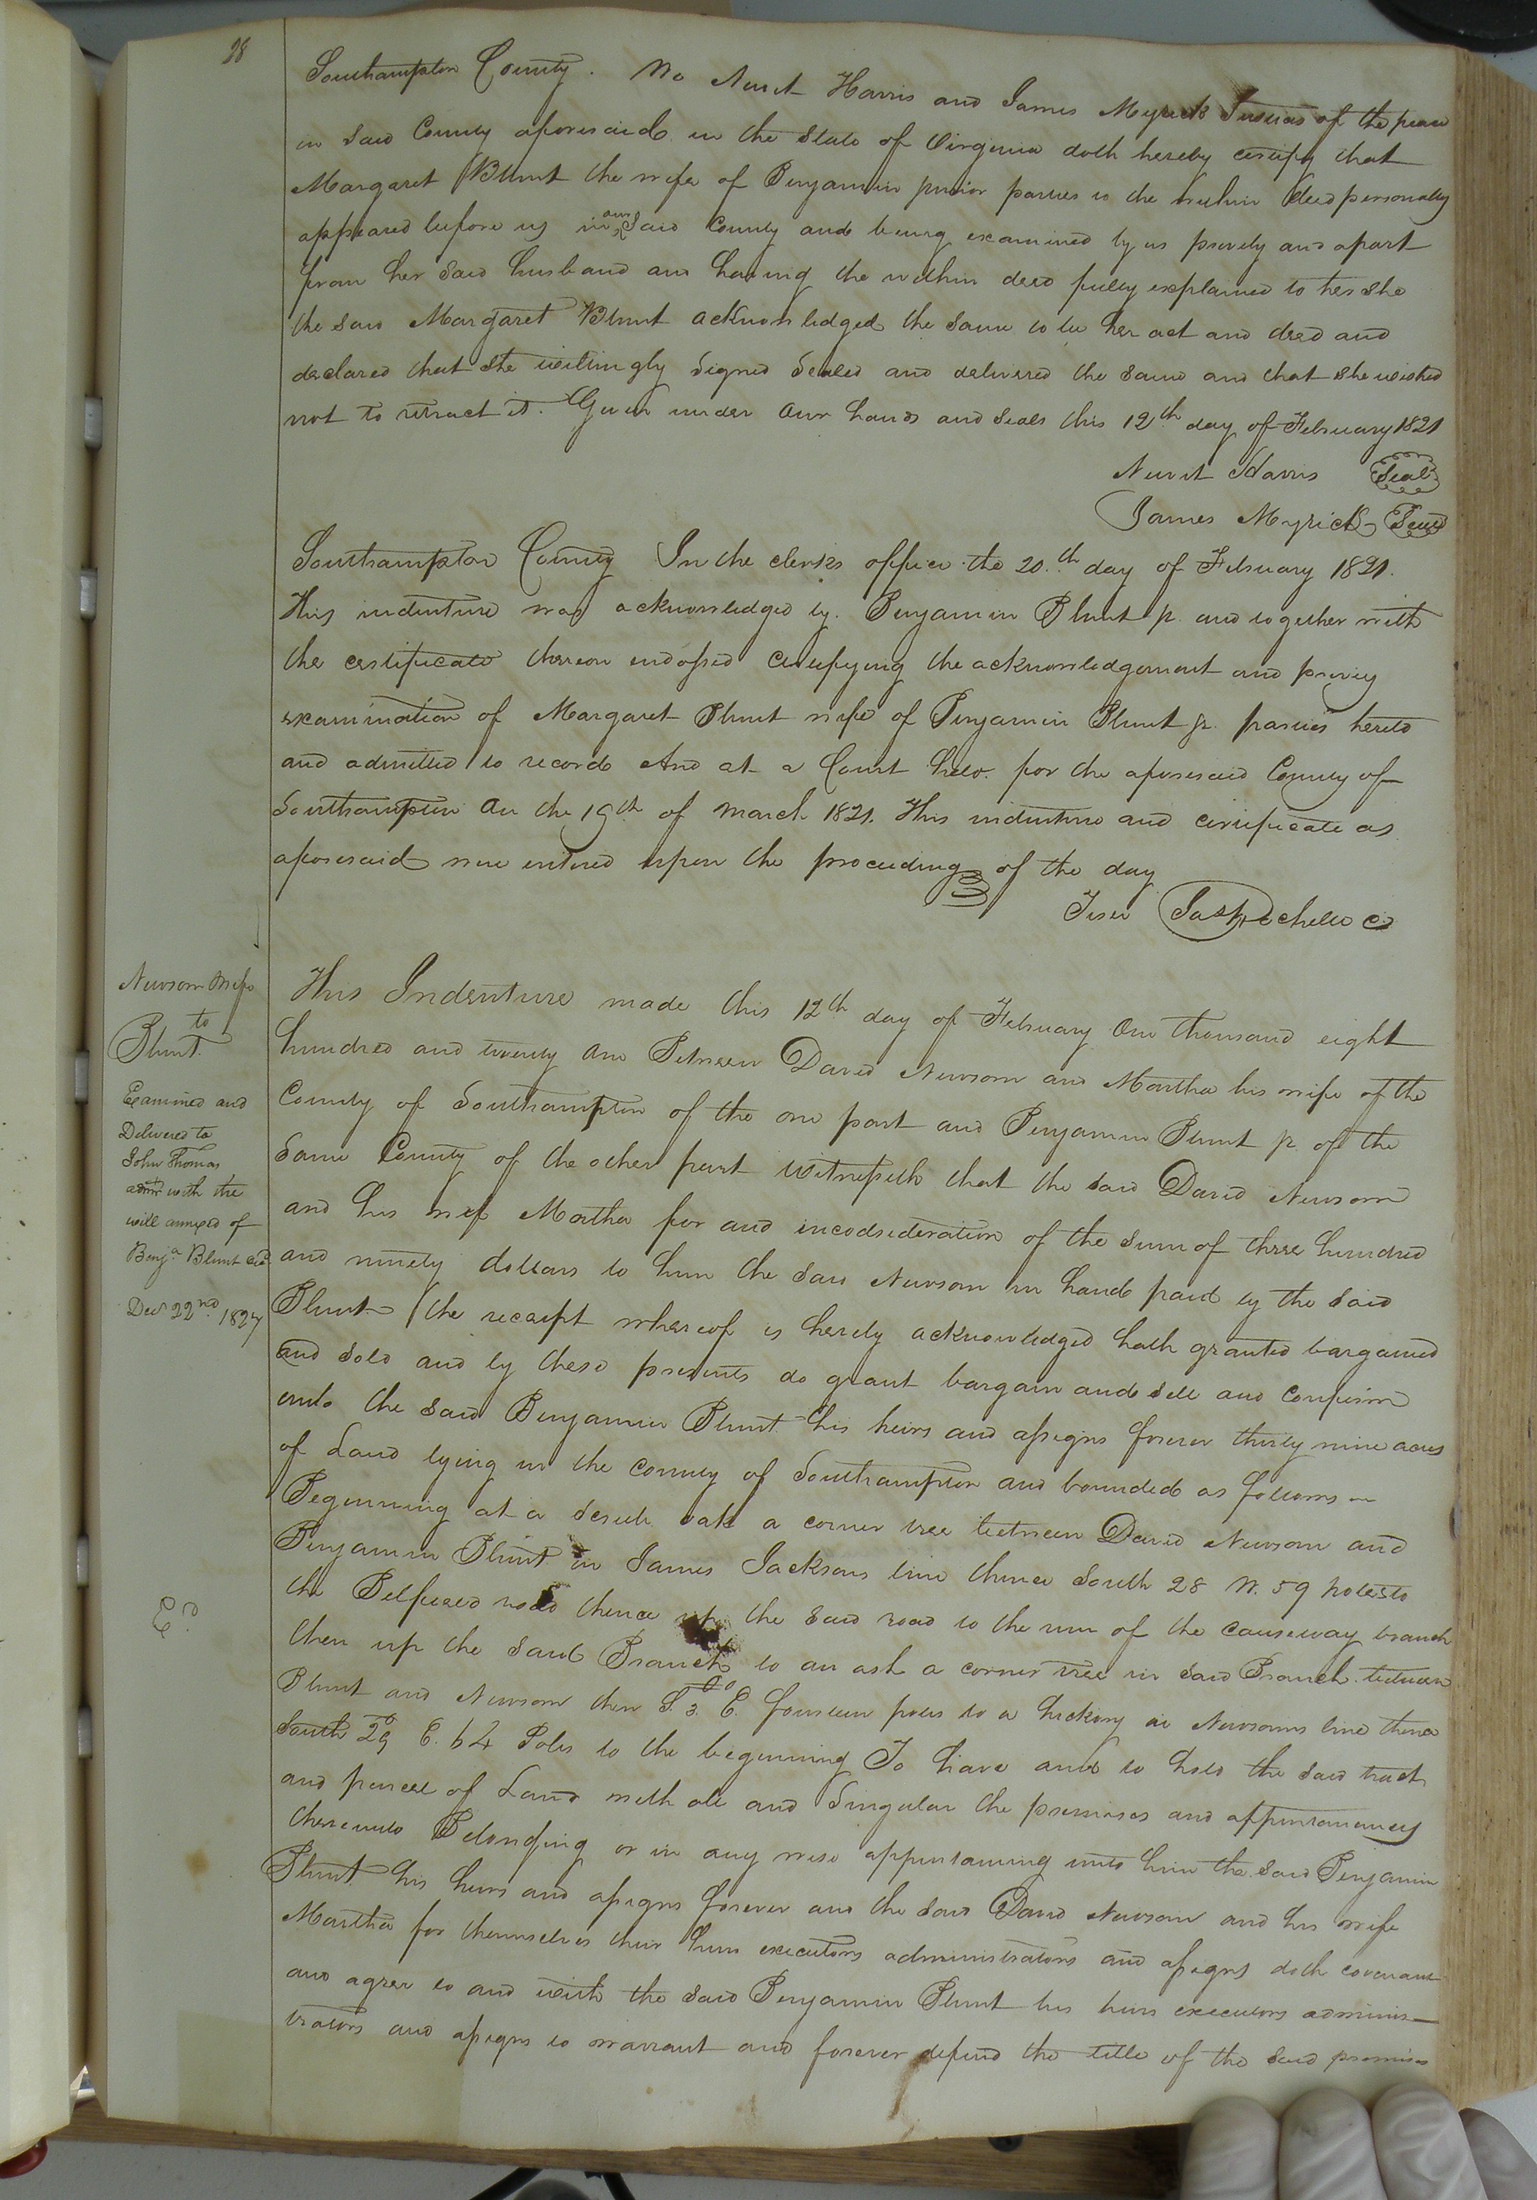 28
Southampton County. We Newit Harris and James Myrick Justices of the peace
in said County aforesaid in the State of Virginia doth hereby certify that
Margaret Blunt the wife of Benjamin junior parties to the within deed personally
appeared before us in our said County and being examined by us privily and apart
from her said husband and having the within deed fully explained to her she
the said Margaret Blunt acknowledged the same to be her act and deed and
declared that she willingly signed sealed and delivered the same and that she wished
not to retract it. Given under our hands and seals this 12th day of February 1821
Newit Harris Seal
James Myrick Seal
Southampton County In the clerks office the 20th day of February 1821.
This indenture was acknowledged by Benjamin Blunt jr. and together with
the certificate thereon endorsed certifying the acknowledgement and privey
examination of Margaret Blunt wife of Benjamin Blunt jr. parties hereto
and admitted to record And at a Court held for the aforesaid County of
Southampton on the 19th of March 1821. This indenture and certificate as
aforesaid were entered upon the proceedings of the day
Teste Jas Rochelle C
Newsom & wife
to
Blunt.
Examined and
Delivered to
John Thomas
admr with the
will annexed of
Benja Blunt decd
Decr 22nd 1827
Ed.
This Indenture made this 12th day of February One thousand eight
hundred and twenty one Between David Newsom and Martha his wife of the
County of Southampton of the one part and Benjamin Blunt jr. of the
Same County of the other part witnesseth that the said David Newsom
and his wife Martha for and incodsideration of the sum of three hundred
and ninety dollars to him the said Newsom in hand paid by the said
Blunt the receipt whereof is hereby acknowledged hath granted bargained
and sold and by these presents do grant bargain and sell and confirm
unto the said Benjamin Blunt his heirs and assigns forever thirty nine acres
of Land lying in the County of Southampton and bounded as follows
Beginning at a oak a corner tree between David Newsom and
Benjamin Blunt in James Jacksons line thence South 28 W. 59 poles to
the Belfield road thence up the said road to the run of the causeway branch
then up the said Branch to an ash a corner tree in said Branch between
Blunt and Newsom then S. 3° E. fourteen poles to a hickory in Newsoms line thence
South 29° E. 64 Poles to the beginning To have and to hold the said tract
and parcel of Land with all and Singular the premises and appurtenances
thereunto Belonging or in any wise appertaining unto him the said Benjamin
Blunt his heirs and assigns forever and the said David Newsom and his wife
Martha for themselves their heirs executors administrators and assigns doth covenant
and agree to and with the said Benjamin Blunt his heirs executors adminis-
trators and assigns to warrant and forever defend the title of the said premises